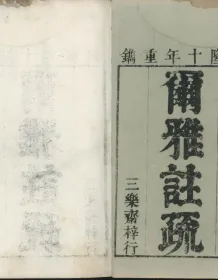 十年重鐫
爾雅註疏
三樂齋梓行